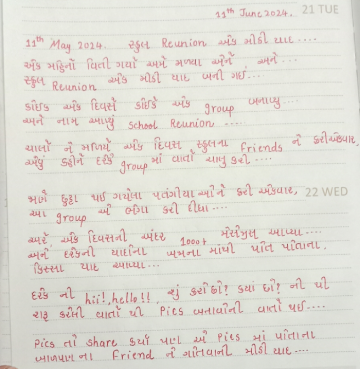 11th June 2024.
21 TUE
11th May 2024. સ્કુલ Reunion એક મીઠી યાદ....
એક મહિનો વિતી ગયો અમે મળ્યા એને, અને...
સ્કુલ Reunion એક મીઠી યાદ બની ગઈ....
કોઈક એક દિવસે કોઈકે એક group બનાવ્યુ...
અને નામ આપ્યું School Reunion.....
ચાલો ને મળીયે એક દિવસ સ્કુલના friends ને ફરીએકવાર,
એવું કહીને દરેકે group માં વાતો ચાલુ કરી....
જાણે છુટા પઈ ગયેલા પતંગીયા ઓને ફરી એકવાર,
22 WED
આ group એ ભેગા કરી દીધા....
અને એક દિવસની અંદર 1000+ મેસેજીસ આવ્યા....
અને દરેકની યાદીના બચપના માંથી પોત પોતાના.
કિસ્સા યાદ આવ્યા...
દરેક ની hii!,hello!!, શું કરોછો? ક્યાં છો? ની પી
શરૂ કરેલી વાતો થી Pics બનાવાની વાતો થઈ....
Pics તો share કર્યા પણ એ Pics માં પોતાના
બાળપણ ના Friend ને ગોતવાની મીઠી યાદ....